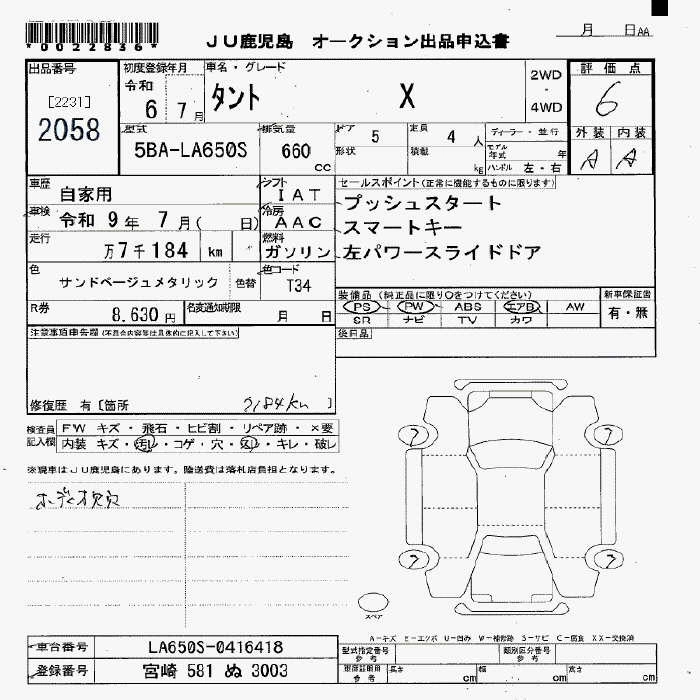 *0022836*
JU鹿児島 オークション出品申込書
月 日AA
出品番号
[2231]
2058
初度登録年月
令和
6 7月
車名・グレード
タント X
2WD
・
4WD
評価点
6
外装 内装
A A
型式
5BA-LA650S
排気量
660 cc
ドア 5
形状
定員 4 人
積載 kg
ディーラー・並行
モデル年式 年
ハンドル 左・右
車歴 自家用
シフト IAT
車検 令和 9年 7月( 日)
冷房 AAC
走行 万7千184 km
燃料 ガソリン
色 サンドベージュメタリック 色替
色コード T34
R券 8,630円
名変通知期限 月 日
セールスポイント(正常に機能するものに限ります)
プッシュスタート
スマートキー
左パワースライドドア
装備品(純正品に限り○をつけてください)
PS PW ABS エアB AW
SR ナビ TV カワ
新車保証書
有・無
後日品
注意事項申告欄(不具合内容等は具体的に記入して下さい)
修復歴 有〔箇所 7184km 〕
検査員記入欄
FW キズ・飛石・ヒビ割・リペア跡・×要
内装 キズ・汚レ・コゲ・穴・スレ・キレ・破レ
※現車はJU鹿児島にあります。陸送費は落札店負担となります。
スペア
A-キズ E-エクボ U-凹み W-補修跡 S-サビ C-腐食 XX-交換済
車台番号 LA650S-0416418
登録番号 宮崎 581 ぬ 3003
型式指定番号 参考
類別区分番号 参考
参考 長さ cm 幅 cm 高さ cm